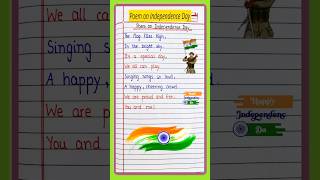 Poem on Independence Day
Poem on Independence Day
The flag flies high,
In the bright sky.
It's a special day,
We all can play.
Singing songs so loud,
A happy, cheering crowd.
We are proud and free,
You and me!
Happy
Independens
Da
We all
Singing
A happy,
We are
You and